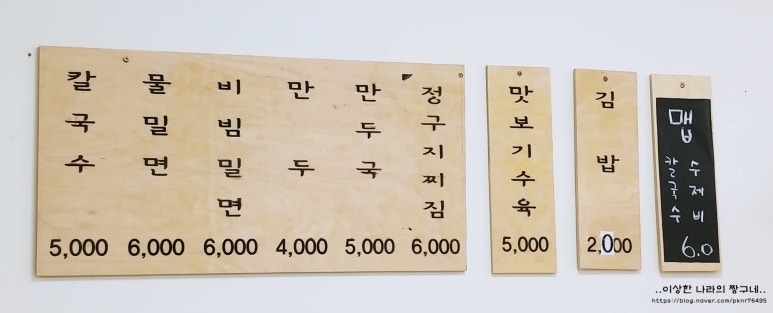 칼국수
5,000
물밀면
6,000
비빔밀면
6,000
만두
4,000
만두국
5,000
정구지찌짐
6,000
맛보기수육
5,000
김밥
2,000
맵
칼국수
수제비
6.0
..이상한 나라의 짱구네..
https://blog.naver.com/pknr76495